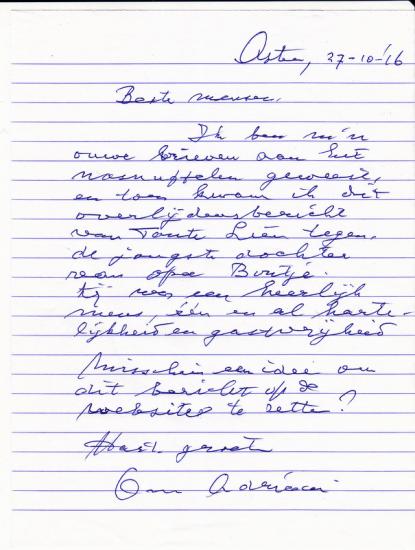 Asten, 27-10-'16
Beste mensen,
Ik ben m'n
ouwe brieven aan het
nasnuffelen geweest,
en toen kwam ik dit
overlijdensbericht
van Tante Lien tegen,
de jongste dochter
van opa Bontje.
Zij was een heerlijk
mens, één en al harte-
lijkheid en gastvrijheid
Misschien een idee om
dit bericht op de
websites te zetten?
Hart. groeten
Oom